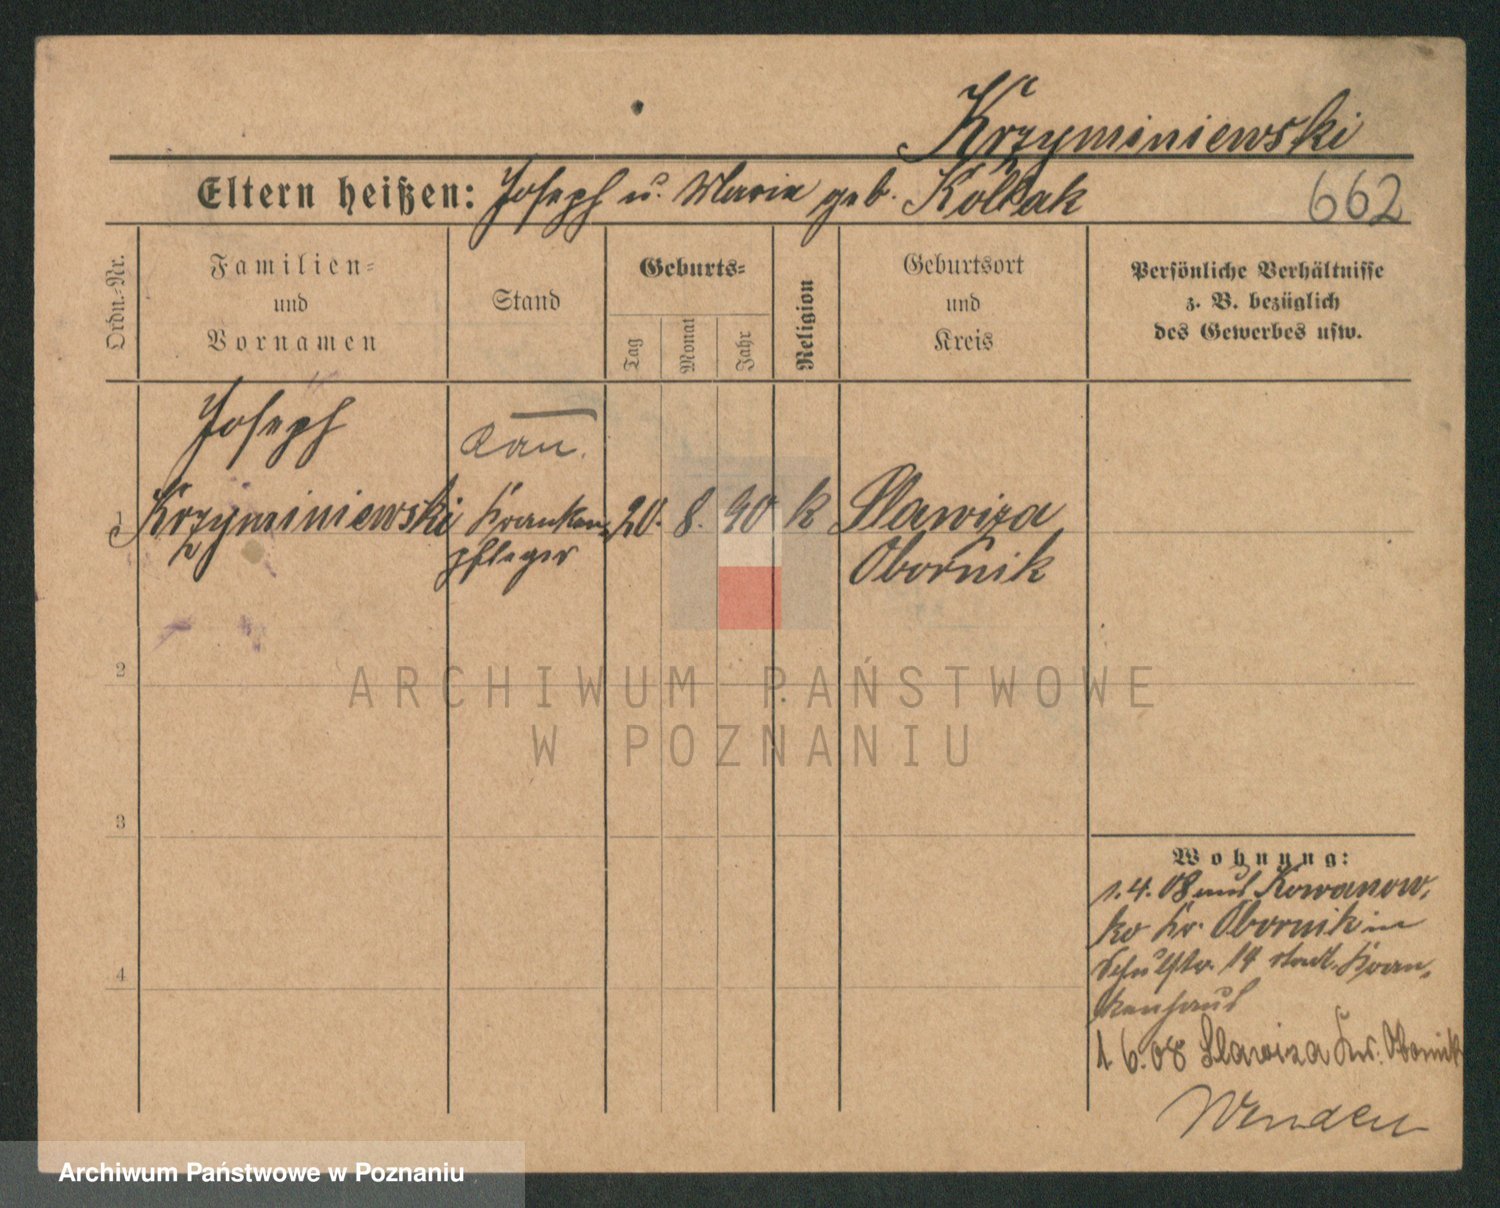 Krzyminiewski
Eltern heißen: Joseph u. Maria geb. Kollak
662
Ordn.-Nr.
Familien-
und
Vornamen
Stand
Geburts-
Tag
Monat
Jahr
Religion
Geburtsort
und
Kreis
Persönliche Verhältnisse
z. B. bezüglich
des Gewerbes usw.
Joseph
1 Krzyminiewski Kranken- 20. 8. 90 k Slawiza
pfleger Obornik
2
3
4
Wohnung:
1.4.08 aus Kowanow-
ko Kr. Obornik in
Schulstr. 14 stadt. Kran-
kenhaus
1 6.08 Slawiza Kr. Obornik
Wenden
ARCHIWUM PAŃSTWOWE
W POZNANIU
Archiwum Państwowe w Poznaniu